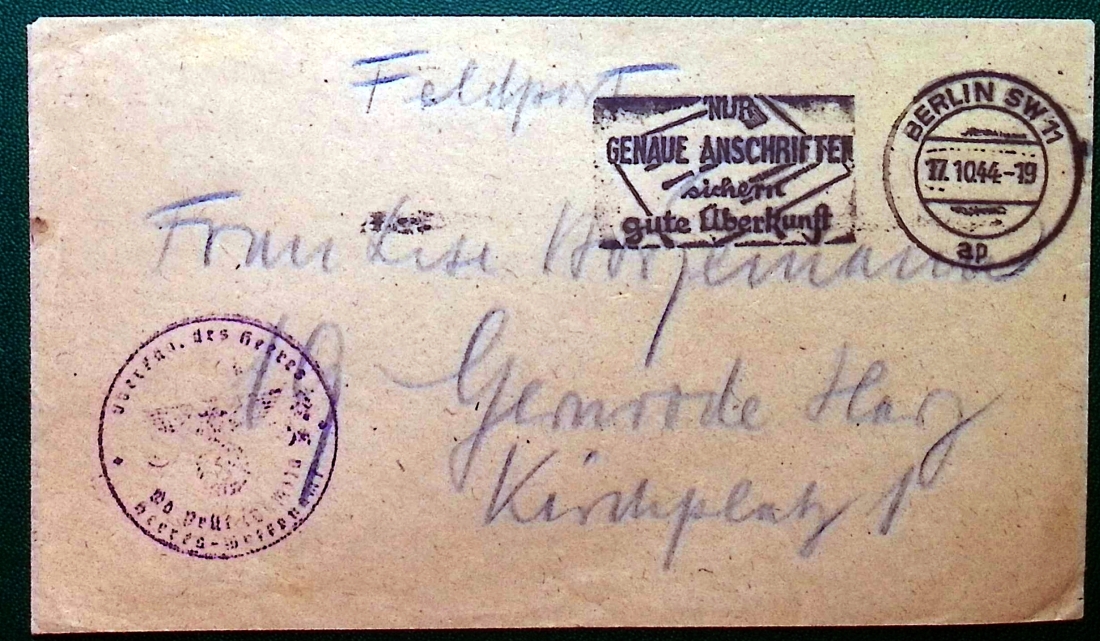 Feldpost
NUR
GENAUE ANSCHRIFTEN
sichern
gute Überkunft
BERLIN SW 11
17.10.44-19
ap
Frau Lise
19 Gernrode Harz
Kirchplatz 1
des Heeres
Heeres-Waffenamt